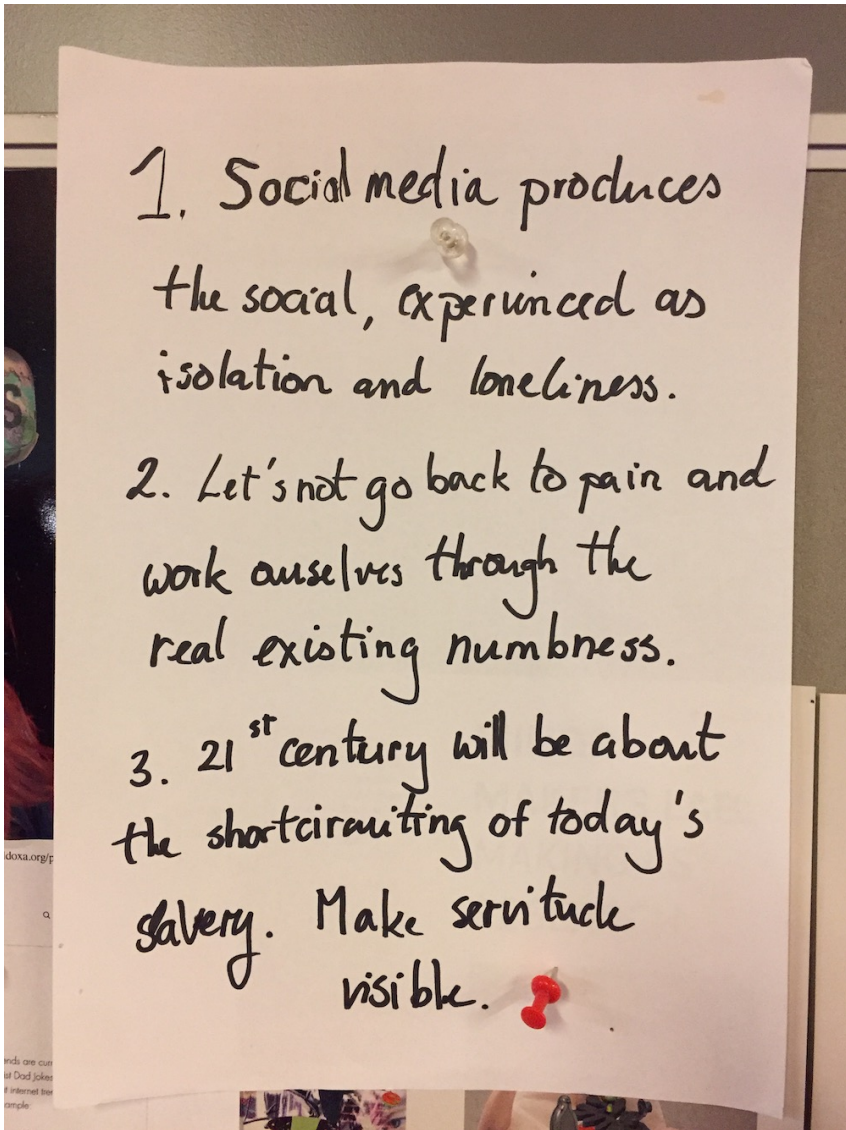 1. Social media produces
the social, experienced as
isolation and loneliness.
2. Let's not go back to pain and
work ourselves through the
real existing numbness.
3. 21st century will be about
the shortcircuiting of today's
slavery. Make servitude
visible.
S
doxa.org/p
ends are curr
st Dad Jokes
internet tre
ample